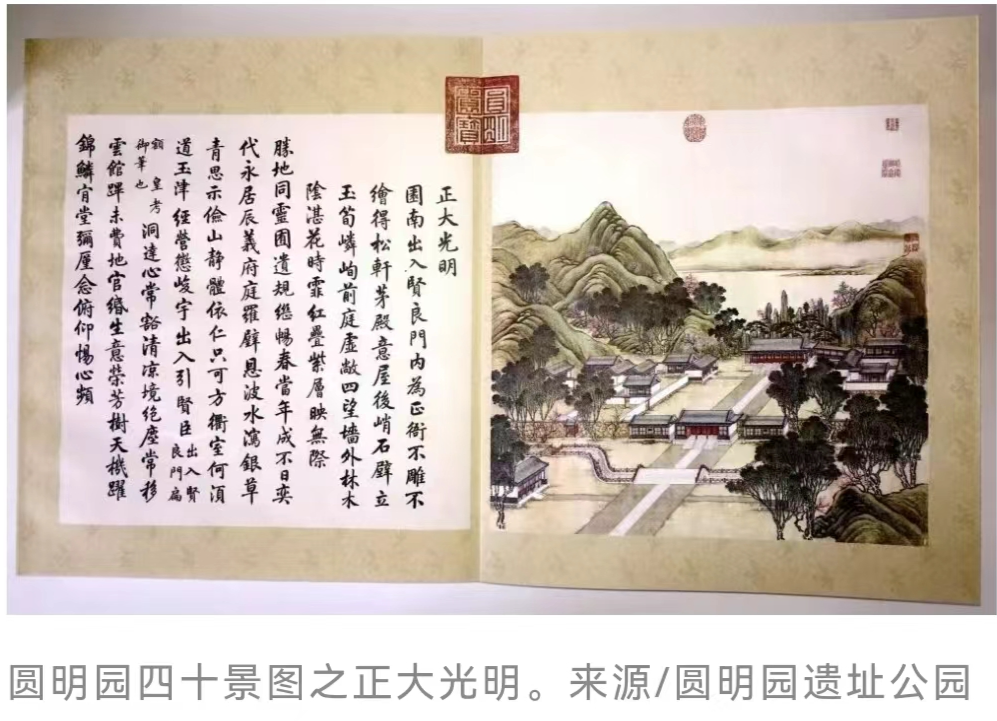 正大光明
園南出入賢良門内為正衙不雕不
繪得松軒茅殿意屋後峭石壁立
玉筍嶙峋前庭虛敞四望墻外林木
陰湛花時霏紅疊紫層映無際
勝地同靈囿遺規繼暢春當年成不日奕
代永居辰義府庭羅壁恩波水瀉銀草
青思示儉山静體依仁只可方衢室何須
道玉津經營懲峻宇出入引賢臣 出入賢 良門扁
額 皇考 御筆也 洞達心常豁清凉境絶塵常移
雲館蹕未費地官緡生意榮芳樹天機躍
錦鱗宵堂彌厪念俯仰惕心頻
圆明园四十景图之正大光明。来源/圆明园遗址公园